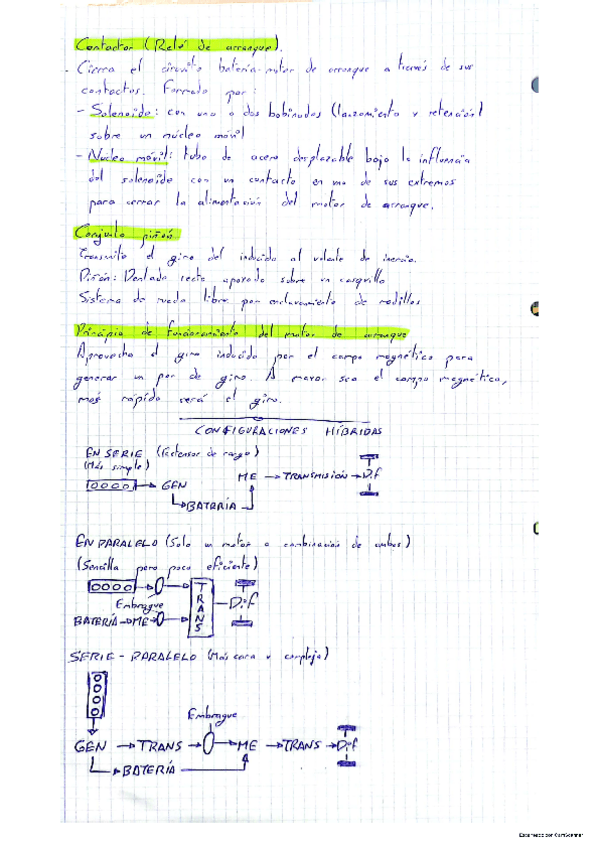 Contactor (Relé de arranque).
- Cierra el circuito batería-motor de arranque a través de sus
contactos. Formado por:
- Solenoide: con una o dos bobinados (lanzamiento y retención)
sobre un núcleo móvil
- Núcleo móvil: tubo de acero desplazable bajo la influencia
del solenoide con un contacto en uno de sus extremos
para cerrar la alimentación del motor de arranque.
Conjunto piñón
Transmite el giro del inducido al volante de inercia.
Piñón: Dentado recto apoyado sobre un casquillo
Sistema de rueda libre por enclavamiento de rodillos
Principio de funcionamiento del motor de arranque
Aprovecha el giro inducido por el campo magnético para
generar un par de giro. A mayor sea el campo magnético,
más rápido será el giro.
CONFIGURACIONES HÍBRIDAS
EN SERIE (Extensor de rango)
(Más simple)
GEN
BATERÍA
ME → TRANSMISIÓN → Dif
EN PARALELO (Solo un motor o combinación de ambos)
(Sencilla pero poco eficiente)
Embrague
BATERÍA → ME
TRANS
Dif
SERIE - PARALELO (Más cara y compleja)
Embrague
GEN → TRANS → ME → TRANS → Dif
BATERÍA
Escaneado con CamScanner